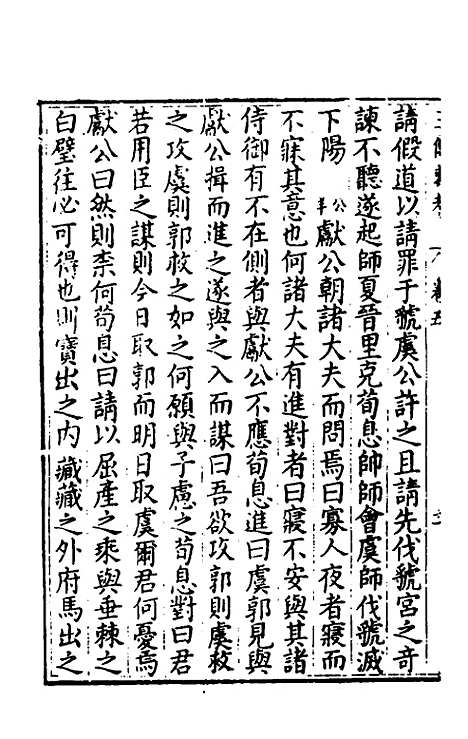 請假道以請罪于虢虞公許之且請先伐虢宮之竒
諫不聽遂起師夏晉里克荀息帥師會虞師伐虢滅
下陽 公羊 獻公朝諸大夫而問焉曰寡人夜者寢而
不寐其意也何諸大夫有進對者曰寢不安與其諸
侍御有不在側者與獻公不應荀息進曰虞郭見與
獻公揖而進之遂與之入而謀曰吾欲攻郭則虞救
之攻虞則郭救之如之何願與子慮之荀息對曰君
若用臣之謀則今日取郭而明日取虞爾君何憂焉
獻公曰然則柰何荀息曰請以屈產之乘與垂棘之
白璧往必可得也則寶出之内藏藏之外府馬出之